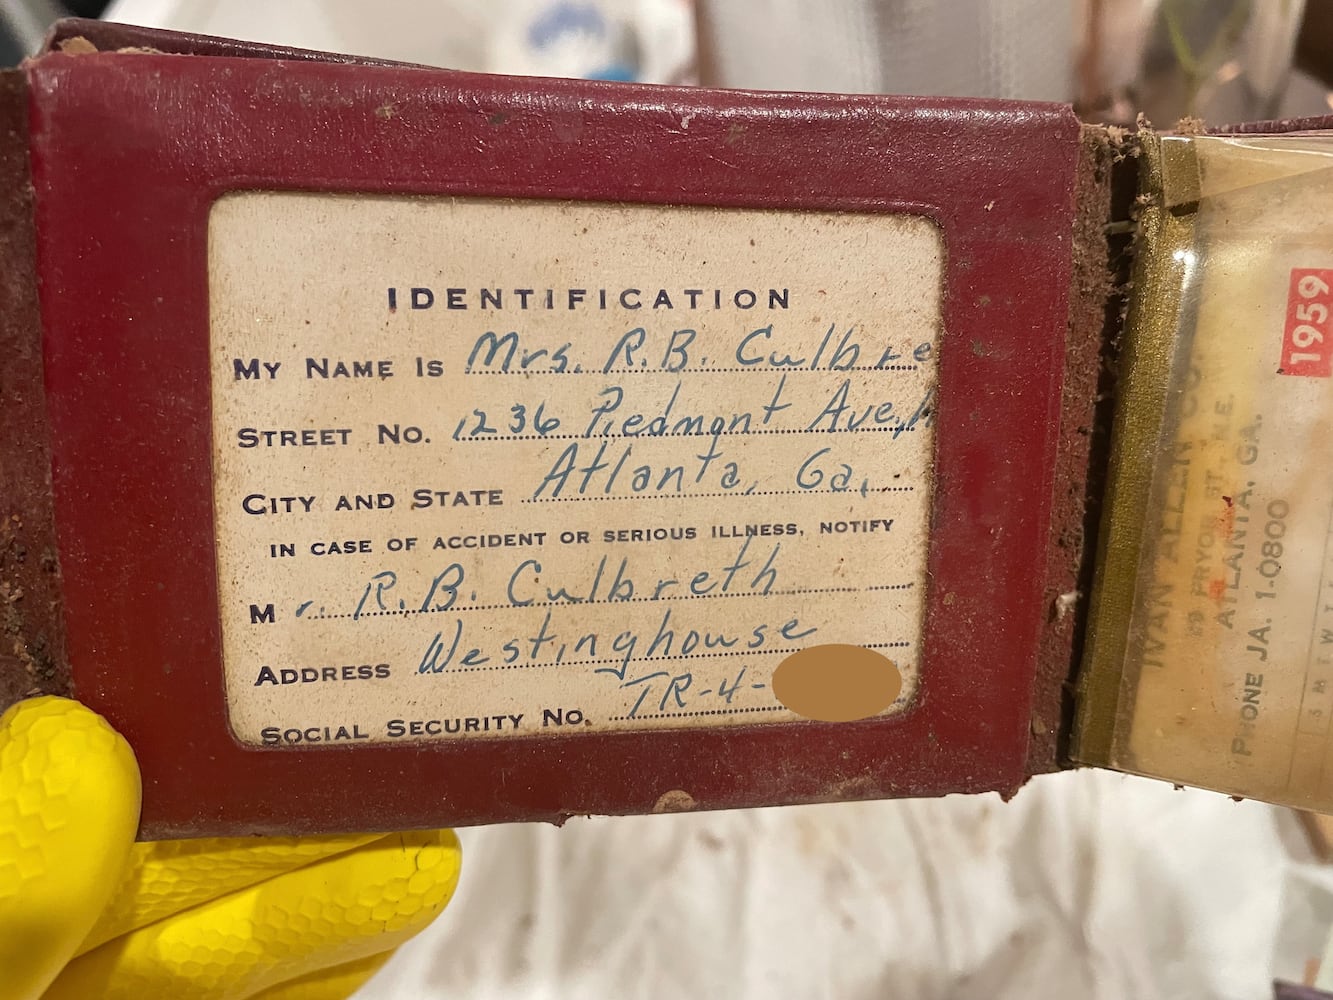 IDENTIFICATION
MY NAME IS Mrs. R.B. Culbre
STREET NO. 1236 Piedmont Ave,
CITY AND STATE Atlanta, Ga.
IN CASE OF ACCIDENT OR SERIOUS ILLNESS, NOTIFY
Mr. R.B. Culbreth
ADDRESS Westinghouse
TR-4-
SOCIAL SECURITY NO.
IVAN ALLEN CO.
PRYOR ST., N.E.
ATLANTA, GA.
PHONE JA. 1-0800
1959
S M T W T